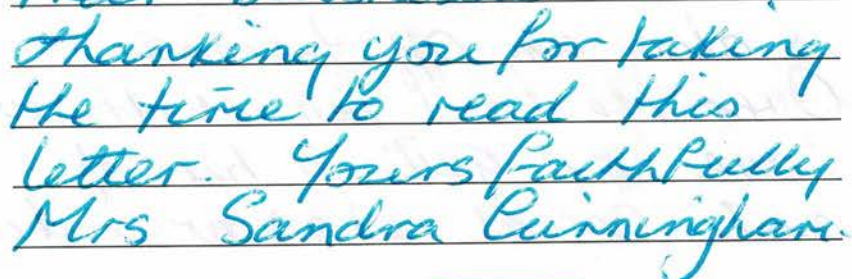 thanking you for taking
the time to read this
letter. Yours faithfully
Mrs Sandra Cunningham.